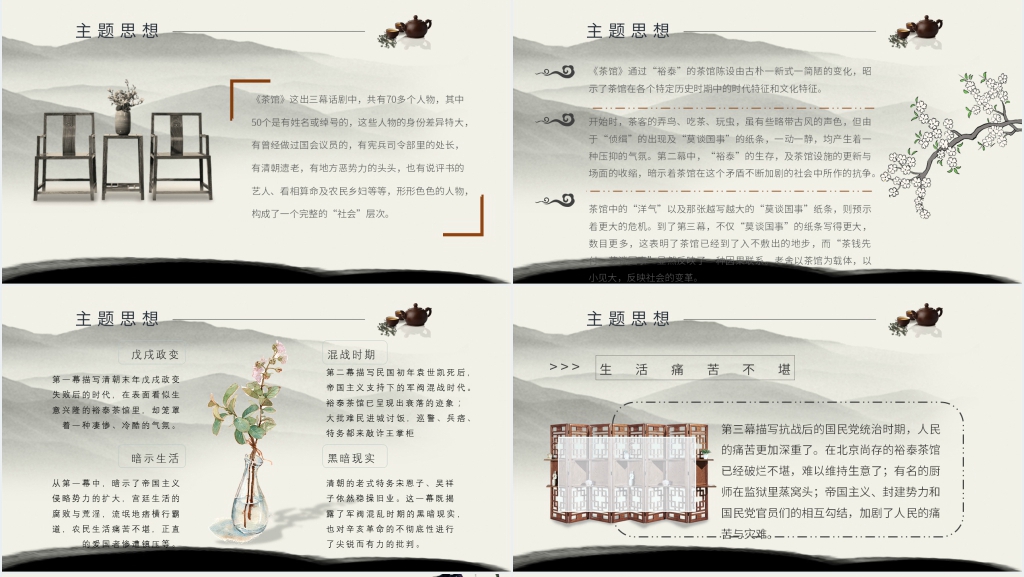 主题思想
《茶馆》这出三幕话剧中，共有70多个人物，其中
50个是有姓名或绰号的，这些人物的身份差异特大，
有曾经做过国会议员的，有宪兵司令部里的处长，
有清朝遗老，有地方恶势力的头头，也有说评书的
艺人、看相算命及农民乡妇等等，形形色色的人物，
构成了一个完整的“社会”层次。
主题思想
《茶馆》通过“裕泰”的茶馆陈设由古朴一新式一简陋的变化，昭
示了茶馆在各个特定历史时期中的时代特征和文化特征。
开始时，茶客的弄鸟、吃茶、玩虫，虽有些略带古风的声色，但由
于“侦缉”的出现及“莫谈国事”的纸条，一动一静，均产生着一
种压抑的气氛。第二幕中，“裕泰”的生存，及茶馆设施的更新与
场面的收缩，暗示着茶馆在这个矛盾不断加剧的社会中所作的抗争。
茶馆中的“洋气”以及那张越写越大的“莫谈国事”纸条，则预示
着更大的危机。到了第三幕，不仅“莫谈国事”的纸条写得更大，
数目更多，这表明了茶馆已经到了入不敷出的地步，而“茶钱先
老舍以茶馆为载体，以
小见大，反映社会的变革。
主题思想
戊戌政变
第一幕描写清朝末年戊戌政变
失败后的时代，在表面看似生
意兴隆的裕泰茶馆里，却笼罩
着一种凄惨、冷酷的气氛。
暗示生活
从第一幕中，暗示了帝国主义
侵略势力的扩大，宫廷生活的
腐败与荒淫，流氓地痞横行霸
道，农民生活痛苦不堪，正直
的爱国者惨遭镇压等。
混战时期
第二幕描写民国初年袁世凯死后，
帝国主义支持下的军阀混战时代。
裕泰茶馆已呈现出衰落的迹象；
大批难民进城讨饭，巡警、兵痞、
特务都来敲诈王掌柜
黑暗现实
清朝的老式特务宋恩子、吴祥
子依然稳操旧业。这一幕既揭
露了军阀混乱时期的黑暗现实，
也对辛亥革命的不彻底性进行
了尖锐而有力的批判。
主题思想
>>> 生活痛苦不堪
第三幕描写抗战后的国民党统治时期，人民
的痛苦更加深重了。在北京尚存的裕泰茶馆
已经破烂不堪，难以维持生意了；有名的厨
师在监狱里蒸窝头；帝国主义、封建势力和
国民党官员们的相互勾结，加剧了人民的痛
苦与灾难。